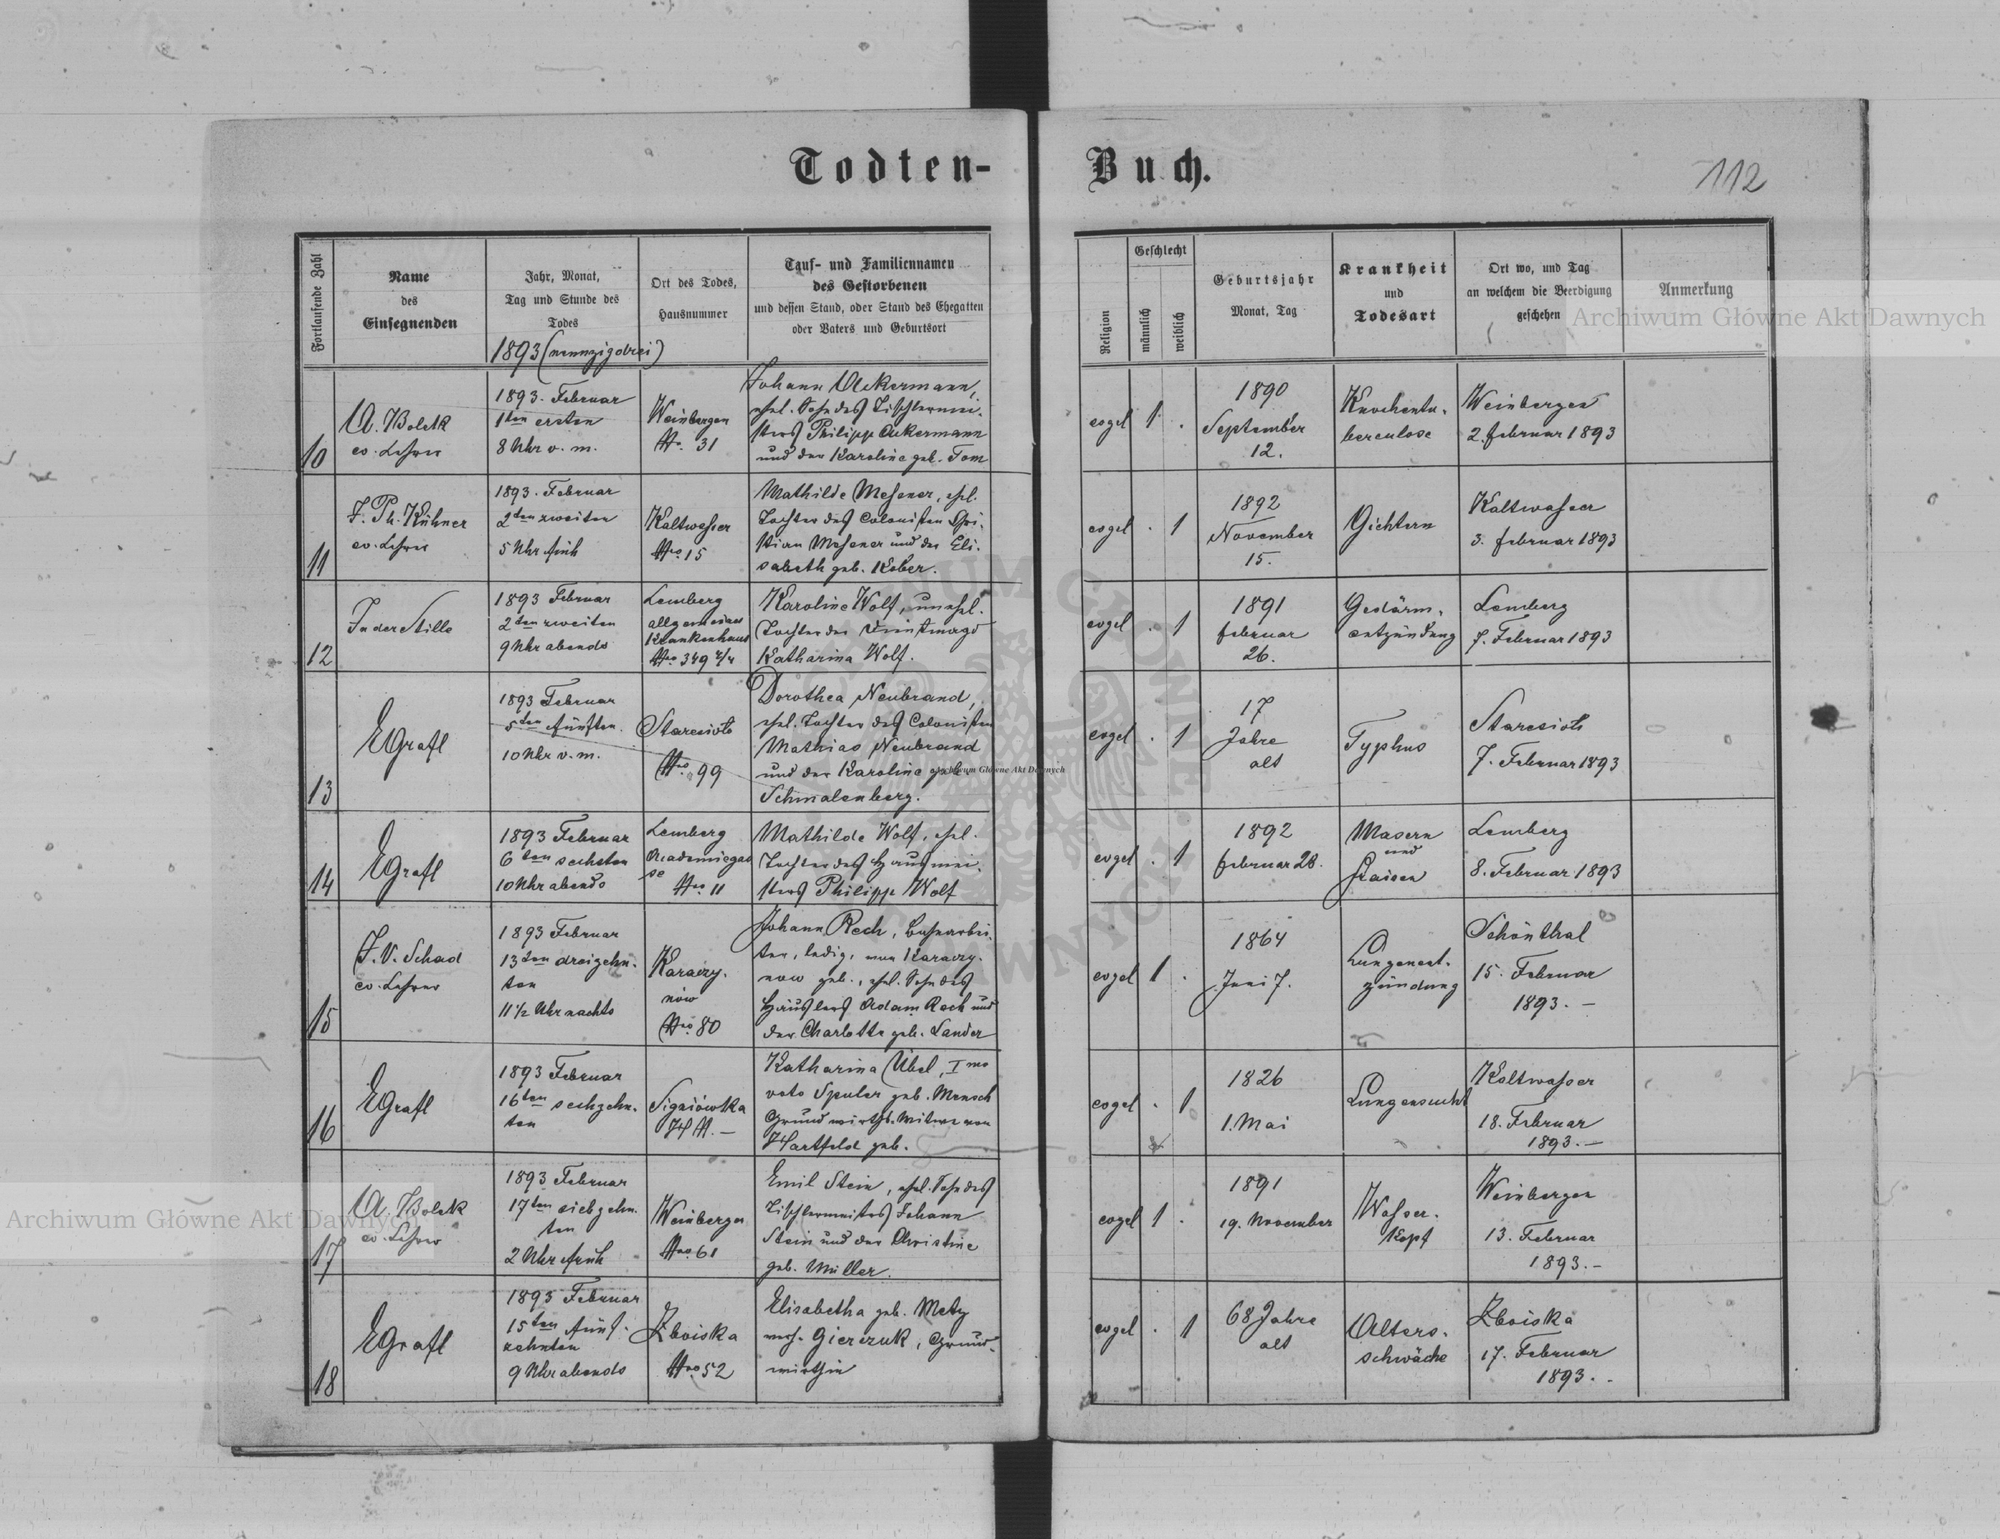 Todten-Buch.
112
Fortlaufende Zahl
Name
des
Einsegnenden
Jahr, Monat,
Tag und Stunde des
Todes
1893 (neunzigdrei)
Ort des Todes,
Hausnummer
Tauf- und Familiennamen
des Gestorbenen
und dessen Stand, oder Stand des Ehegatten
oder Vaters und Geburtsort
Religion
Geschlecht
männlich
weiblich
Geburtsjahr
Monat, Tag
Krankheit
und
Todesart
Ort wo, und Tag
an welchem die Beerdigung
geschehen
Anmerkung
Archiwum Główne Akt Dawnych
10
A. Bolek
ev. Lehrer
1893. Februar
1ten ersten
8 Uhr v. m.
Weinbergen
Nro. 31
Johann Ackermann,
ehel. Sohn des Tischlermei-
sters Philipp Ackermann
und der Karoline geb. Tom
evgel
1 .
1890
September
12.
Knochentu-
berculose
Weinbergen
2. Februar 1893
11
J. Ph. Kühner
ev. Lehrer
1893. Februar
2ten zweiten
5 Uhr früh
Kaltwasser
Nro. 15
Mathilde Mesener, ehel.
Tochter des Colonisten Chri-
stian Mesener und der Eli-
sabeth geb. Kober.
evgel
. 1
1892
November
15.
Gichtern
Kaltwasser
3. Februar 1893
12
In der Stille
1893 Februar
2ten zweiten
9 Uhr abends
Lemberg
allgemeines
Krankenhaus
Nro. 349 2/4
Karoline Wolf, unehel.
Tochter der Dienstmagd
Katharina Wolf.
evgel
. 1
1891
Februar
26.
Gedärm-
entzündung
Lemberg
7. Februar 1893
13
EGrafl
1893 Februar
5ten fünften.
10 Uhr v. m.
Staresioło
Nro. 99
Dorothea Neubrand,
ehel. Tochter des Colonisten
Mathias Neubrand
und der Karoline geb.
Schmalenberg.
evgel
. 1
17
Jahre
alt
Typhus
Staresioło
7. Februar 1893
14
EGrafl
1893 Februar
6ten sechsten
10 Uhr abends
Lemberg
Academiegas
se
Nro 11
Mathilde Wolf, ehel.
Tochter des Hausmei-
sters Philipp Wolf
evgel
. 1
1892
Februar 28.
Masern
und
Fraisen
Lemberg
8. Februar 1893
15
J. V. Schad
ev. Lehrer
1893 Februar
13ten dreizehn-
ten
11 1/2 Uhr nachts
Karaczy-
nów
Nro. 80
Johann Rech, Bahnarbei-
ter, ledig, aus Karaczy-
now geb., ehel. Sohn des
Häuslers Adam Rech und
der Charlotte geb. Lander
evgel
1 .
1864
Juni 7.
Lungenent-
zündung
Schönthal
15. Februar
1893. —
16
EGrafl
1893 Februar
16ten sechzehn-
ten
Signiówka
Katharina Übel, Imo
voto Sputer geb. Mensch
Grundwirths-Witwe von
Hartfeld geb.
evgel
. 1
1826
1. Mai
Lungensucht
Kaltwasser
18. Februar
1893. —
17
A. Bolek
ev. Lehrer
1893 Februar
17ten siebzehn-
ten
2 Uhr früh
Weinbergen
Nro. 61
Emil Stein, ehel. Sohn des
Tischlermeisters Johann
Stein und der Christine
geb. Müller.
evgel
1 .
1891
19. November
Wasser-
kopf
Weinbergen
13. Februar
1893. —
18
EGrafl
1893 Februar
15ten fünf-
zehnten
9 Uhr abends
Zboiska
Nro 52
Elisabetha geb. Metz
verh. Gierczuk, Grund-
wirthin
evgel
. 1
68 Jahre
alt
Alters-
schwäche
Zboiska
17. Februar
1893. -
Archiwum Główne Akt Dawnych
Archiwum Główne Akt Dawnych